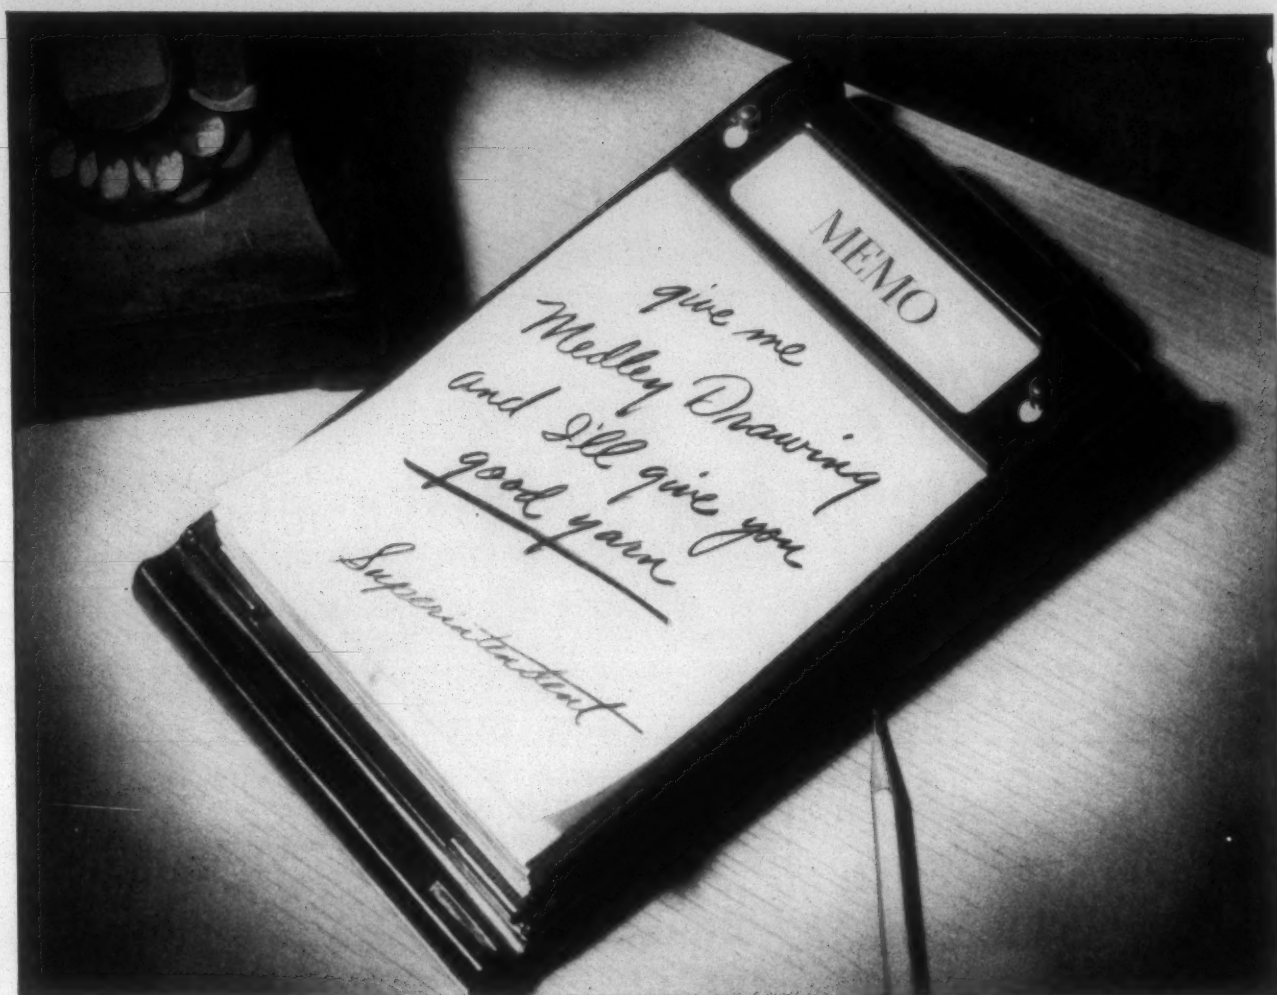 MEMO
give me
Medley Drawing
and I'll give you
good yarn
Superintendent